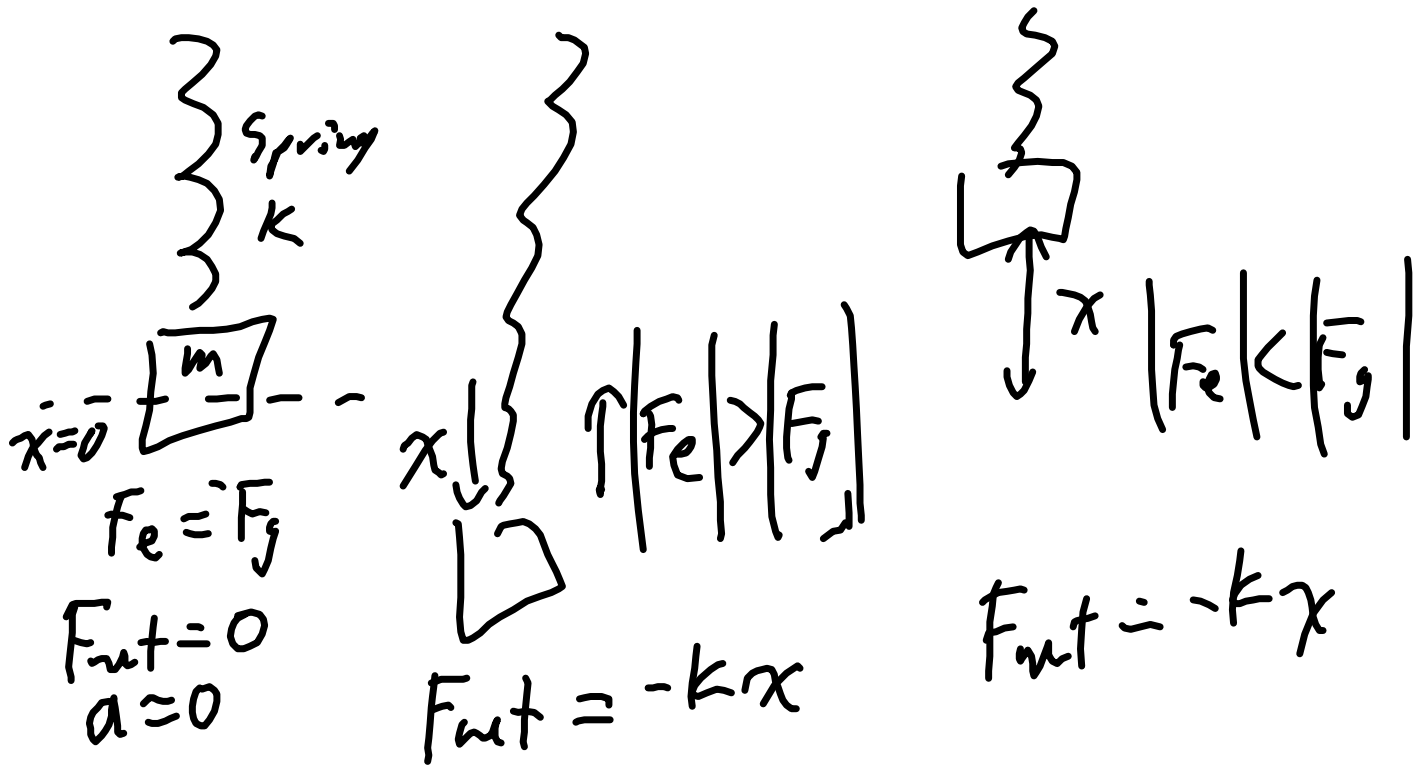 Spring
K
m
x=0
Fe = Fg
Fnet = 0
a = 0
x
|Fe| > |Fg|
Fnet = -kx
x
|Fe| < |Fg|
Fnet = -kx